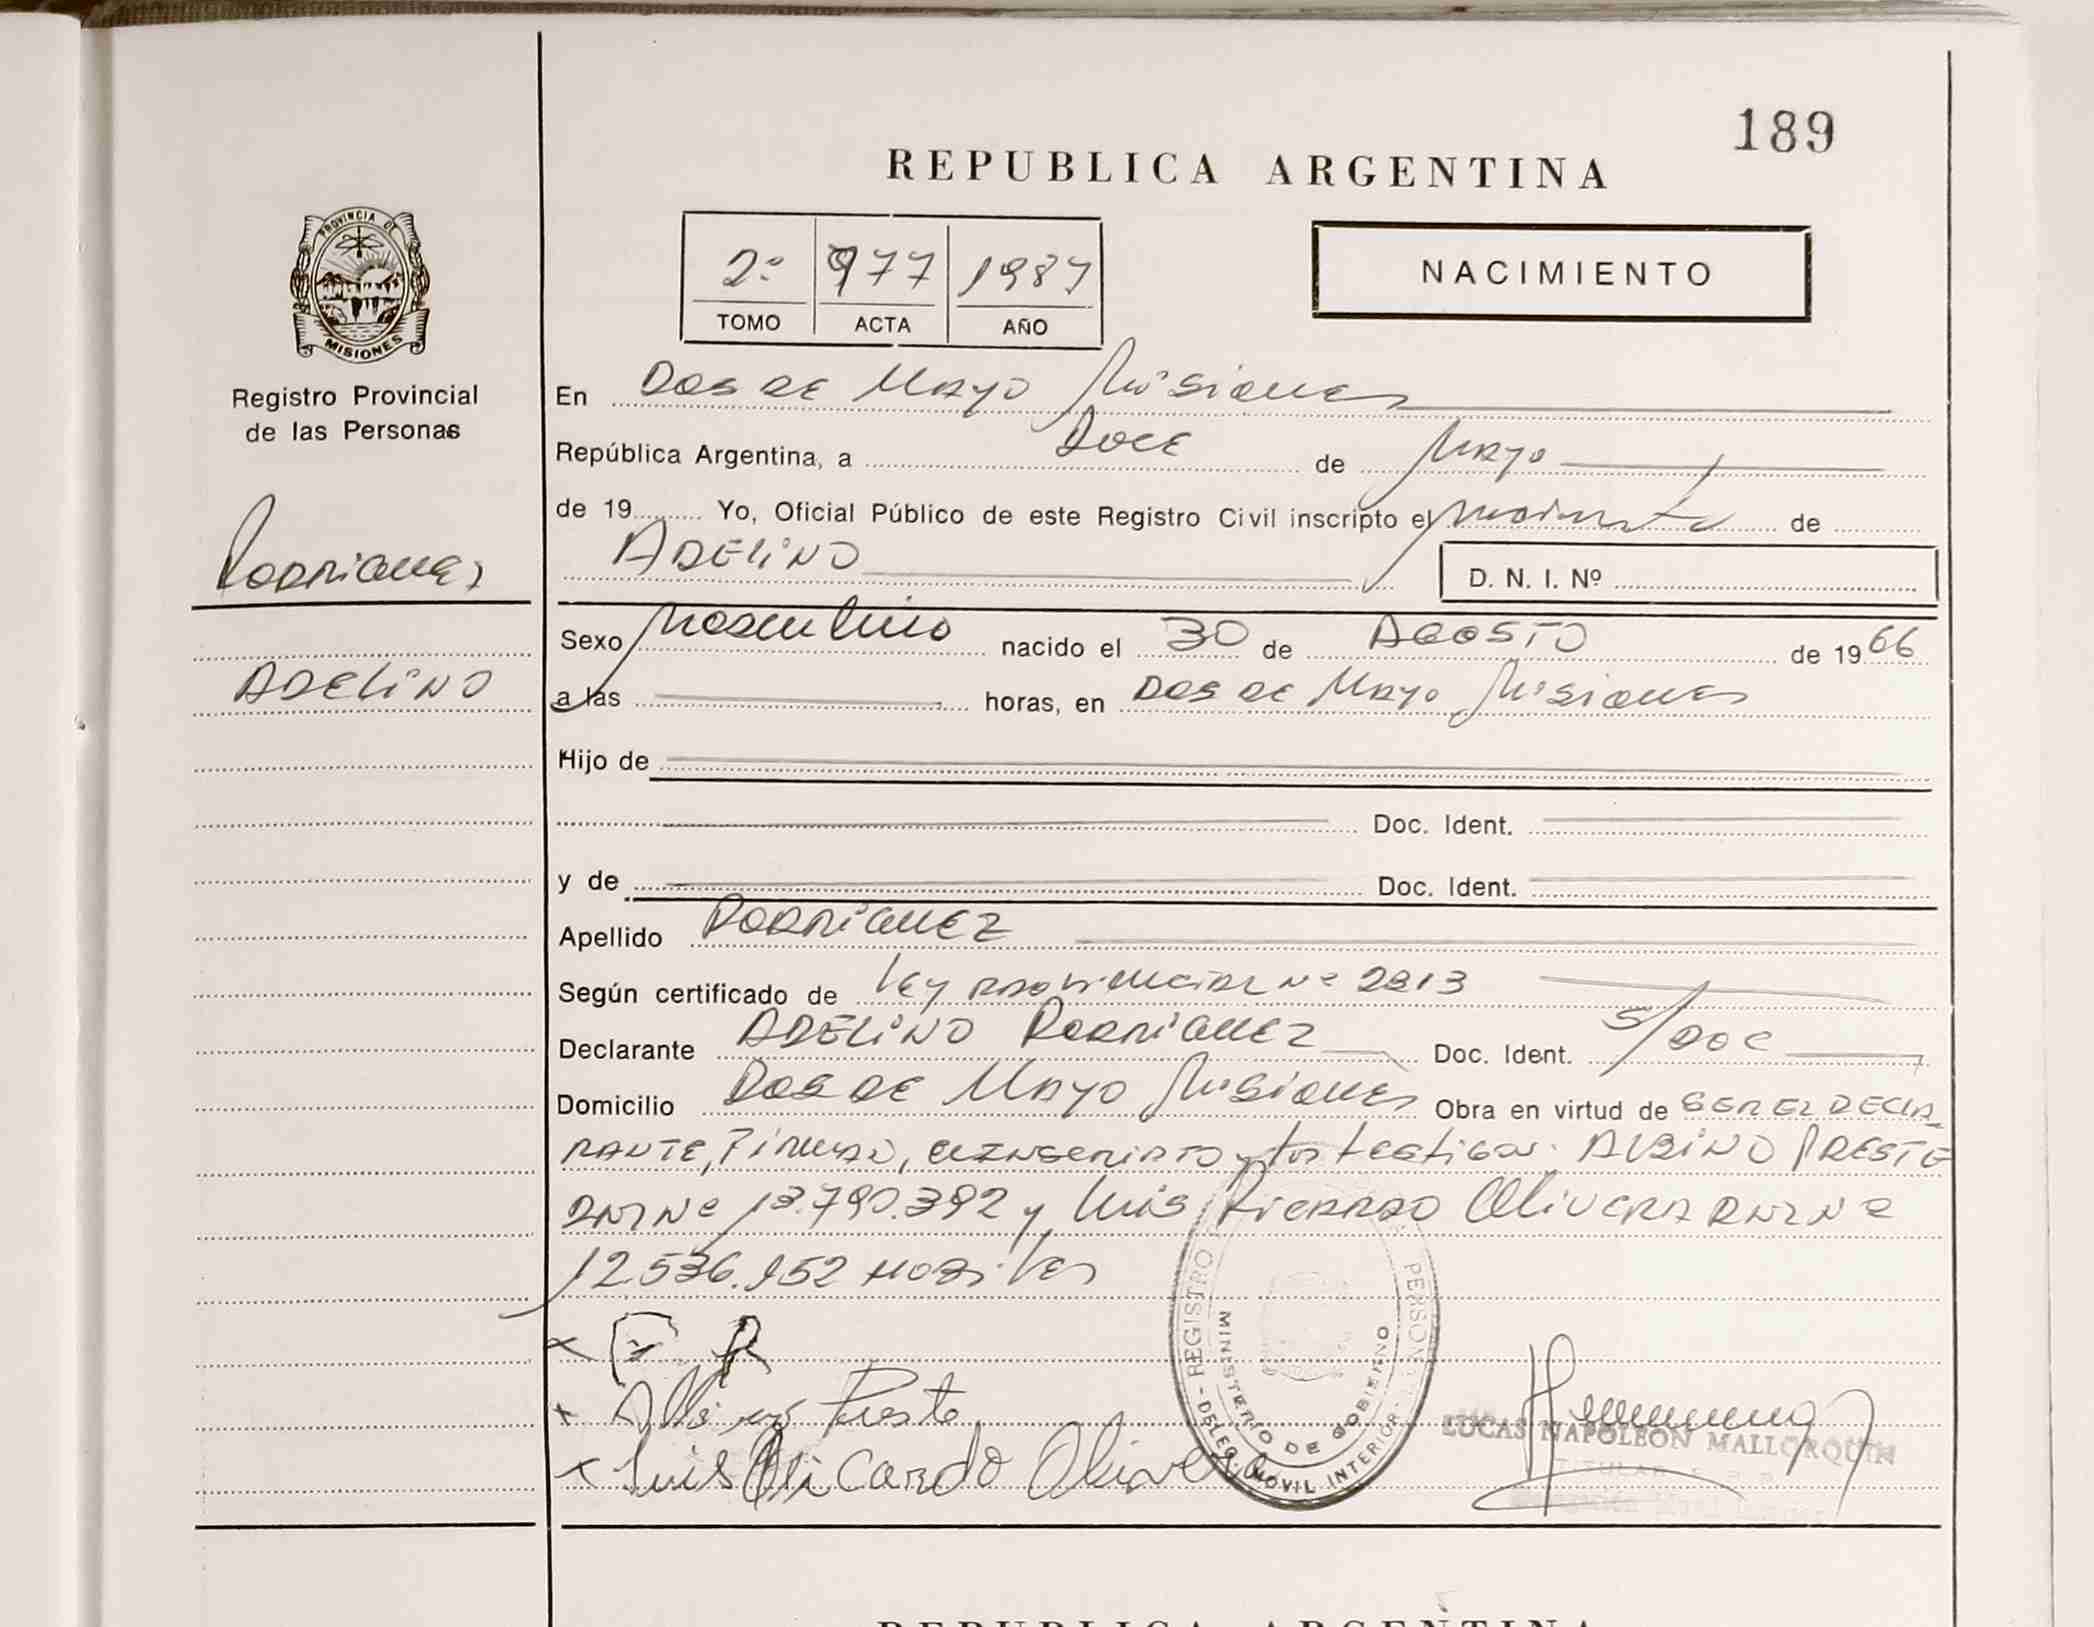 189
REPUBLICA ARGENTINA
PROVINCIA DE
MISIONES
Registro Provincial
de las Personas
2º 977 1987
TOMO ACTA AÑO
NACIMIENTO
En Dos de Mayo Misiones
República Argentina, a Doce de Mayo
de 19 Yo, Oficial Público de este Registro Civil inscripto el nacimiento de
Rodriguez
ADELINO
D. N. I. Nº
Sexo Masculino nacido el 30 de AGOSTO de 1966
ADELINO
a las horas, en Dos de Mayo Misiones
Hijo de
Doc. Ident.
y de Doc. Ident.
Apellido RODRIGUEZ
Según certificado de Ley Provincial Nº 2213
Declarante ADELINO RODRIGUEZ Doc. Ident. S/DOC
Domicilio Dos de Mayo Misiones Obra en virtud de SER EL DECLA
RANTE, FIRMAN, el INSCRIPTO y los testigos: ALBINO PRESTE
DNI Nº 13.790.392 y Luis RICARDO OLIVERA DNI Nº
12.536.152 HOBILES
Albino Preste
Luis Ricardo Olivera
REGISTRO PERSON
MINISTERIO DE GOBIERNO
DELEG. MOVIL INTERIOR
LUCAS NAPOLEON MALLORQUIN
TITULAR
REPUBLICA ARGENTINA